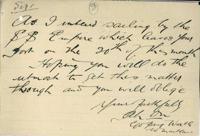 As I intend sailing by the
S.S. Empire which leaves your
Port on the 20th of this month
Hoping you will do the
utmost to get this matter
through and you will oblige
Yours faithfully